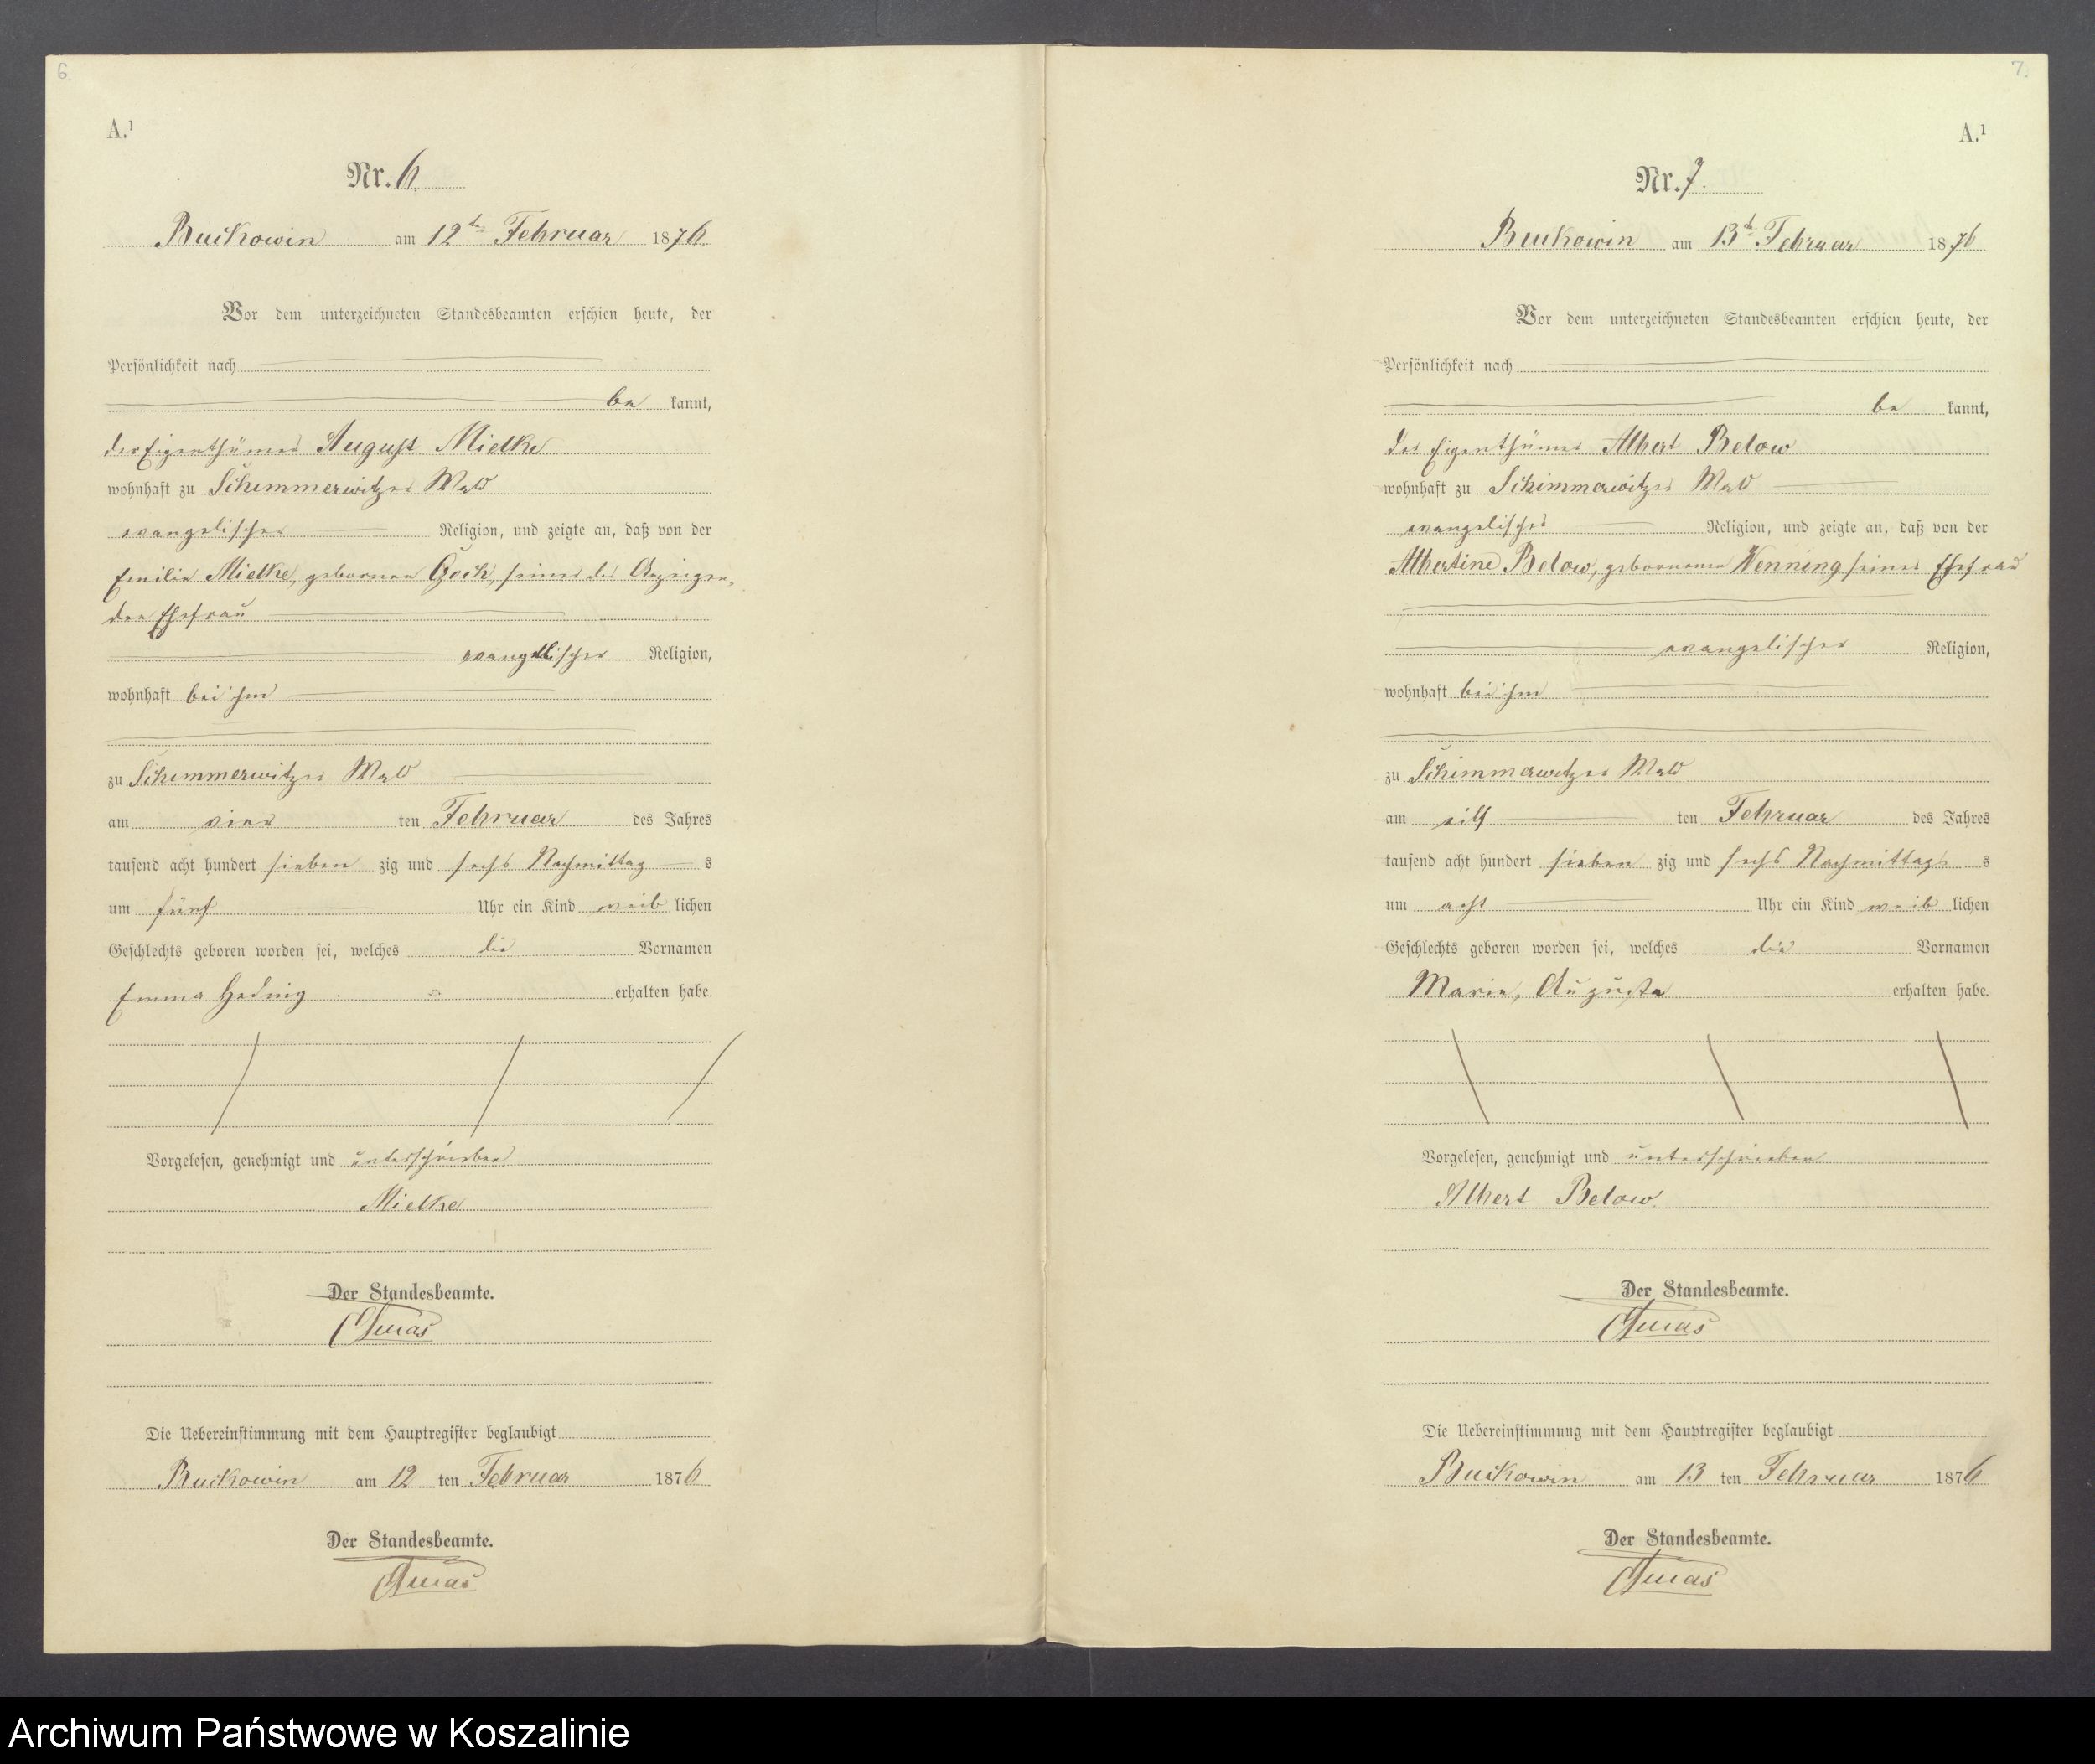 6.
A.¹
Nr. 6.
Buckowin am 12ᵗ Februar 1876.
Vor dem unterzeichneten Standesbeamten erschien heute, der
Persönlichkeit nach
be kannt,
der Eigenthümer August Mielke
wohnhaft zu Schimmerwitzer Wald
evangelischer Religion, und zeigte an, daß von der
Emilie Mielke, geborenen seiner des Anzeigen-
den Ehefrau
evangelischer Religion,
wohnhaft bei ihm
zu Schimmerwitzer Wald
am vier ten Februar des Jahres
tausend acht hundert sieben zig und sechs Nachmittag s
um fünf Uhr ein Kind weib lichen
Geschlechts geboren worden sei, welches die Vornamen
Emma Hedwig erhalten habe.
Vorgelesen, genehmigt und unterschrieben
Mielke
Der Standesbeamte.
Die Uebereinstimmung mit dem Hauptregister beglaubigt
Buckowin am 12 ten Februar 1876
Der Standesbeamte.
7.
A.¹
Nr. 7.
Buckowin am 13ᵗ Februar 1876
Vor dem unterzeichneten Standesbeamten erschien heute, der
Persönlichkeit nach
be kannt,
der Eigenthümer Albert Below
wohnhaft zu Schimmerwitzer Wald
evangelischer Religion, und zeigte an, daß von der
Albertine Below, geborenen Wenning seiner Ehefrau
evangelischer Religion,
wohnhaft bei ihm
zu Schimmerwitzer Wald
am eilf ten Februar des Jahres
tausend acht hundert sieben zig und sechs Nachmittags s
um acht Uhr ein Kind weib lichen
Geschlechts geboren worden sei, welches die Vornamen
Marie, Auguste erhalten habe.
Vorgelesen, genehmigt und unterschrieben
Albert Below.
Der Standesbeamte.
Die Uebereinstimmung mit dem Hauptregister beglaubigt
Buckowin am 13 ten Februar 1876
Der Standesbeamte.
Archiwum Państwowe w Koszalinie